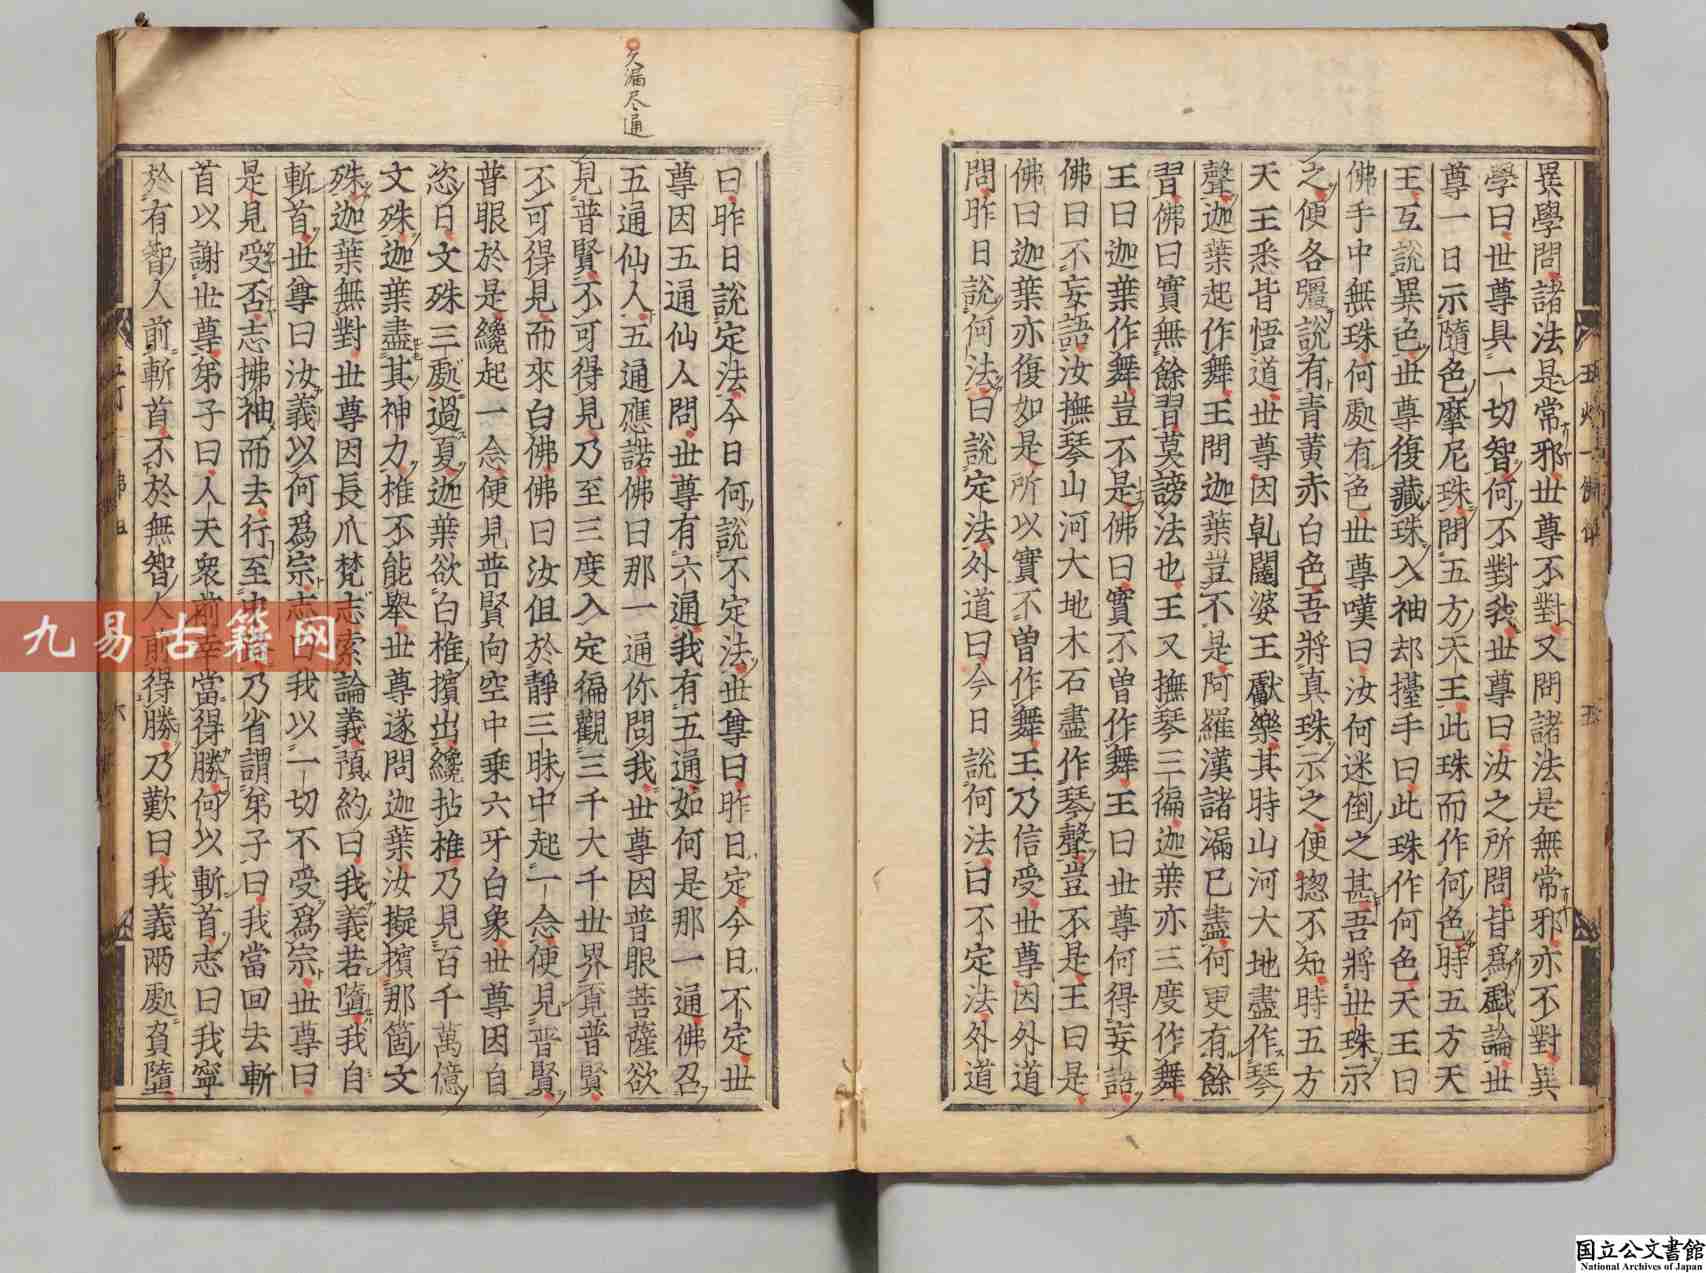 異學問諸法是常邪世尊不對又問諸法是無常邪亦不對異
學曰世尊具一切智何不對我世尊曰汝之所問皆爲戲論世
尊一日示隨色摩尼珠問五方天王此珠而作何色時五方天
王互說異色世尊復藏珠入袖却擡手曰此珠作何色天王曰
佛手中無珠何處有色世尊嘆曰汝何迷倒之甚吾將世珠示
之便各彊說有青黃赤白色吾將真珠示之便揔不知時五方
天王悉皆悟道世尊因乹闥婆王獻樂其時山河大地盡作琴
聲迦葉起作舞王問迦葉豈不是阿羅漢諸漏已盡何更有餘
習佛曰實無餘習莫謗法也王又撫琴三徧迦葉亦三度作舞
王曰迦葉作舞豈不是佛曰實不曽作舞王曰世尊何得妄語
佛曰不妄語汝撫琴山河大地木石盡作琴聲豈不是王曰是
佛曰迦葉亦復如是所以實不曽作舞王乃信受世尊因外道
問昨日說何法曰說定法外道曰今日說何法曰不定法外道
曰昨日說定法今日何說不定法世尊曰昨日定今日不定世
尊因五通仙人問世尊有六通我有五通如何是那一通佛召
五通仙人五通應諾佛曰那一通你問我世尊因普眼菩薩欲
見普賢不可得見乃至三度入定徧觀三千大千世界覔普賢
不可得見而來白佛佛曰汝但於靜三昧中起一念便見普賢
普眼於是纔起一念便見普賢向空中乗六牙白象世尊因自
恣日文殊三處過夏迦葉欲白椎擯出纔拈椎乃見百千萬億
文殊迦葉盡其神力椎不能舉世尊遂問迦葉汝擬擯那箇文
殊迦葉無對世尊因長爪梵志索論義預約曰我義若墮我自
斬首世尊曰汝義以何爲宗志曰我以一切不受爲宗世尊曰
是見受否志拂袖而去行至中路乃省謂弟子曰我當回去斬
首以謝世尊弟子曰人天衆前幸當得勝何以斬首志曰我寧
於有智人前斬首不於無智人前得勝乃歎曰我義兩處負墮
欠漏尽通
六
九易古籍网
国立公文書館
National Archives of Japan